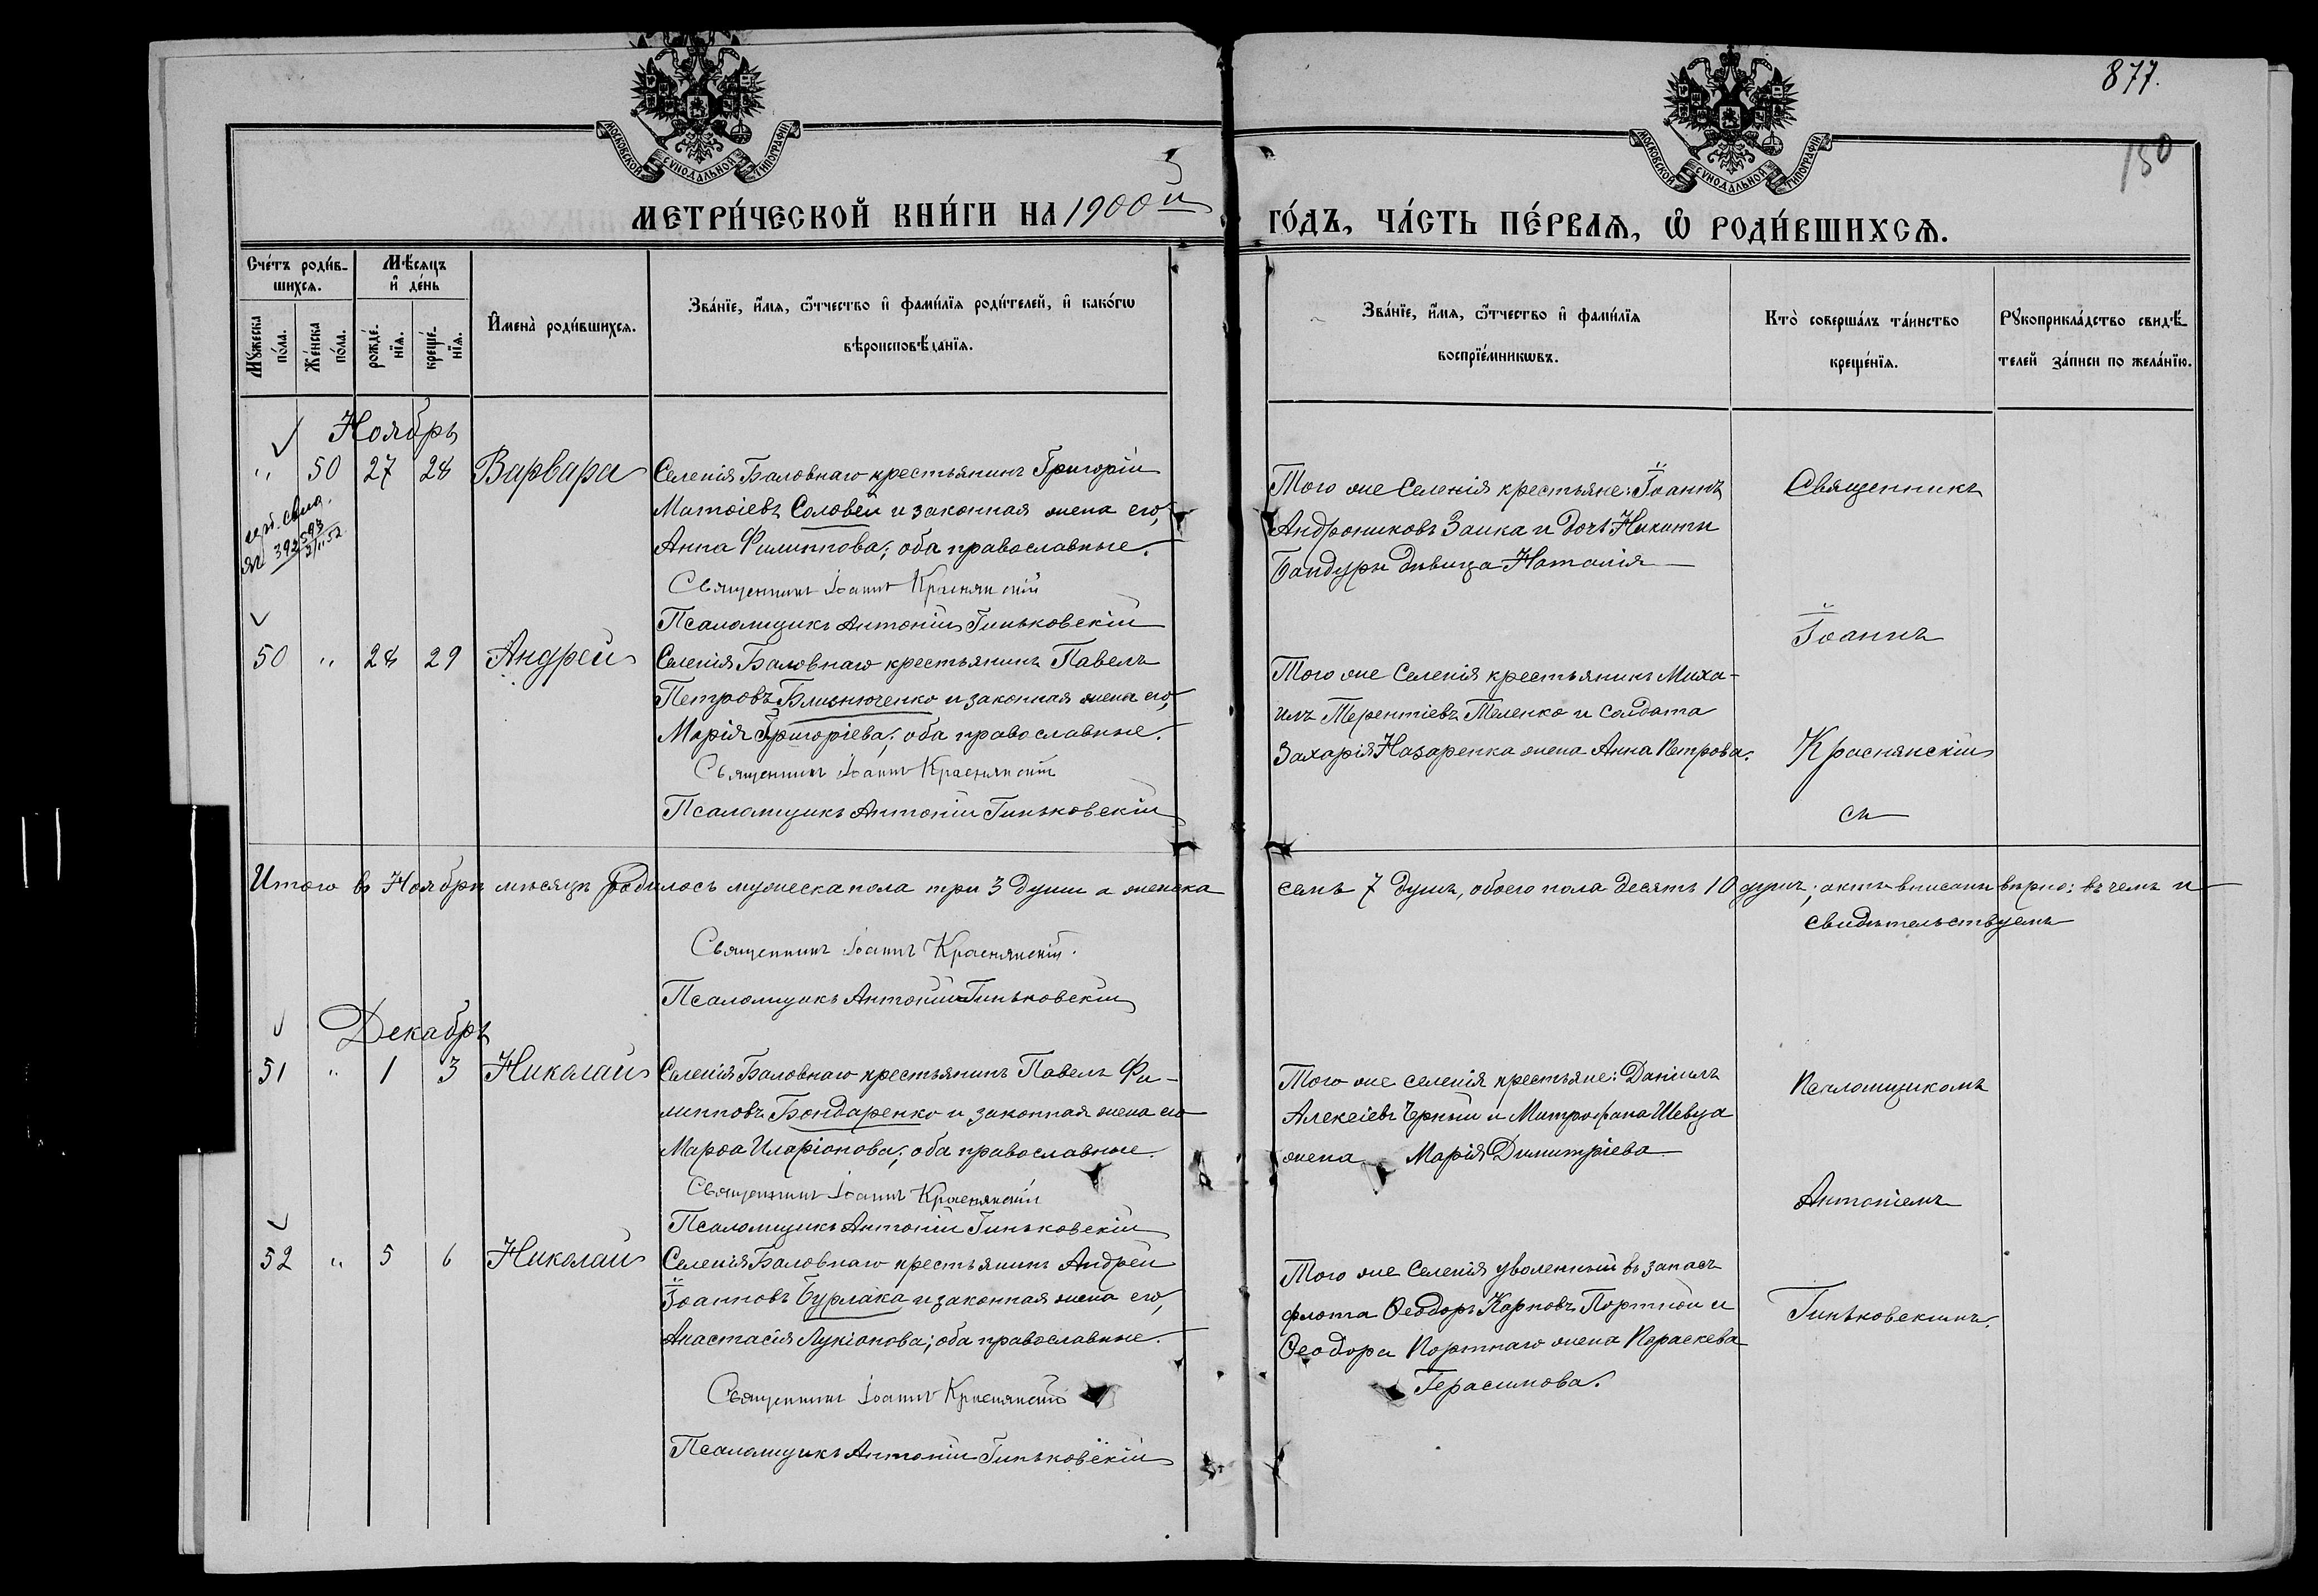 877.
150
МОСКОВСКОЙ СУНОДАЛЬНОЙ ТИПОГРАФІИ
МОСКОВСКОЙ СУНОДАЛЬНОЙ ТИПОГРАФІИ
МЕТРИ́ЧЕСКОЙ КНИ́ГИ НА 1900й
ГО́ДЪ, ЧА́СТЬ ПЕ́РВАѦ, Ѡ РОДИ́ВШИХСѦ.
Сче́тъ роди́в-
шихсѧ.
Мꙋ́жеска по́ла.
Же́нска по́ла.
Мѣ́сѧцъ
и҆ де́нь
рожде́-
нїѧ.
креще́-
нїѧ.
И҆мена̀ роди́вшихсѧ.
Зва́нїе, и҆́мѧ, ѻ҆́тчество и҆ фами́лїѧ роди́телей, и҆ како́гѡ
вѣроисповѣ́данїѧ.
Зва́нїе, и҆́мѧ, ѻ҆́тчество и҆ фами́лїѧ
воспрїе́мникѡвъ.
Кто̀ соверша́лъ та́инство
креще́нїѧ.
Рꙋкоприкла́дство свидѣ́-
телей за́писи по жела́нїю.
Ноябрь
„ 50 27 28 Варвара
Селенія Баловнаго крестьянинъ Григорій
Матѳіевъ Соловей и законная жена его,
Анна Филиппова; оба православные.
Священникъ Іоаннъ Краснянскій
Псаломщикъ Антоній Гиньковскій
Того же селенія крестьяне: Іоаннъ
Андрониковъ Заика и дочь Никиты
Бандуры дѣвица Наталія
Священникъ
Іоаннъ
Краснянскій
392593
50 „ 28 29 Андрей
Селенія Баловнаго крестьянинъ Павелъ
Петровъ Близнюченко и законная жена его,
Марія Григоріева; оба православные.
Священникъ Іоаннъ Краснянскій
Псаломщикъ Антоній Гиньковскій
Того же селенія крестьянинъ Миха-
илъ Терентіевъ Теленко и солдата
Захарія Назаренка жена Анна Петрова.
Итого въ Ноябрѣ мѣсяцѣ родилось мужеска пола три 3 души а женска
семь 7 душъ, обоего пола десять 10 душъ; акты вписаны вѣрно: въ чемъ и
свидѣтельствуемъ
Священникъ Іоаннъ Краснянскій.
Псаломщикъ Антоній Гиньковскій
Декабрь
51 „ 1 3 Николай
Селенія Баловнаго крестьянинъ Павелъ Фи-
липповъ Бондаренко и законная жена его
Марѳа Иларіонова; оба православные.
Священникъ Іоаннъ Краснянскій
Псаломщикъ Антоній Гиньковскій
Того же селенія крестьяне: Даніилъ
Алексіевъ Черный и Митрофана Шевца
жена Марія Димитріева
съ
Псаломщикомъ
Антоніемъ
Гиньковскимъ.
52 „ 5 6 Николай
Селенія Баловнаго крестьянинъ Андрей
Іоанновъ Бурлака и законная жена его,
Анастасія Лукіанова; оба православные.
Священникъ Іоаннъ Краснянскій
Псаломщикъ Антоній Гиньковскій
Того же селенія уволенный въ запасъ
флота Ѳеодоръ Карповъ Портной и
Ѳеодора Портнаго жена Параскева
Герасимова.